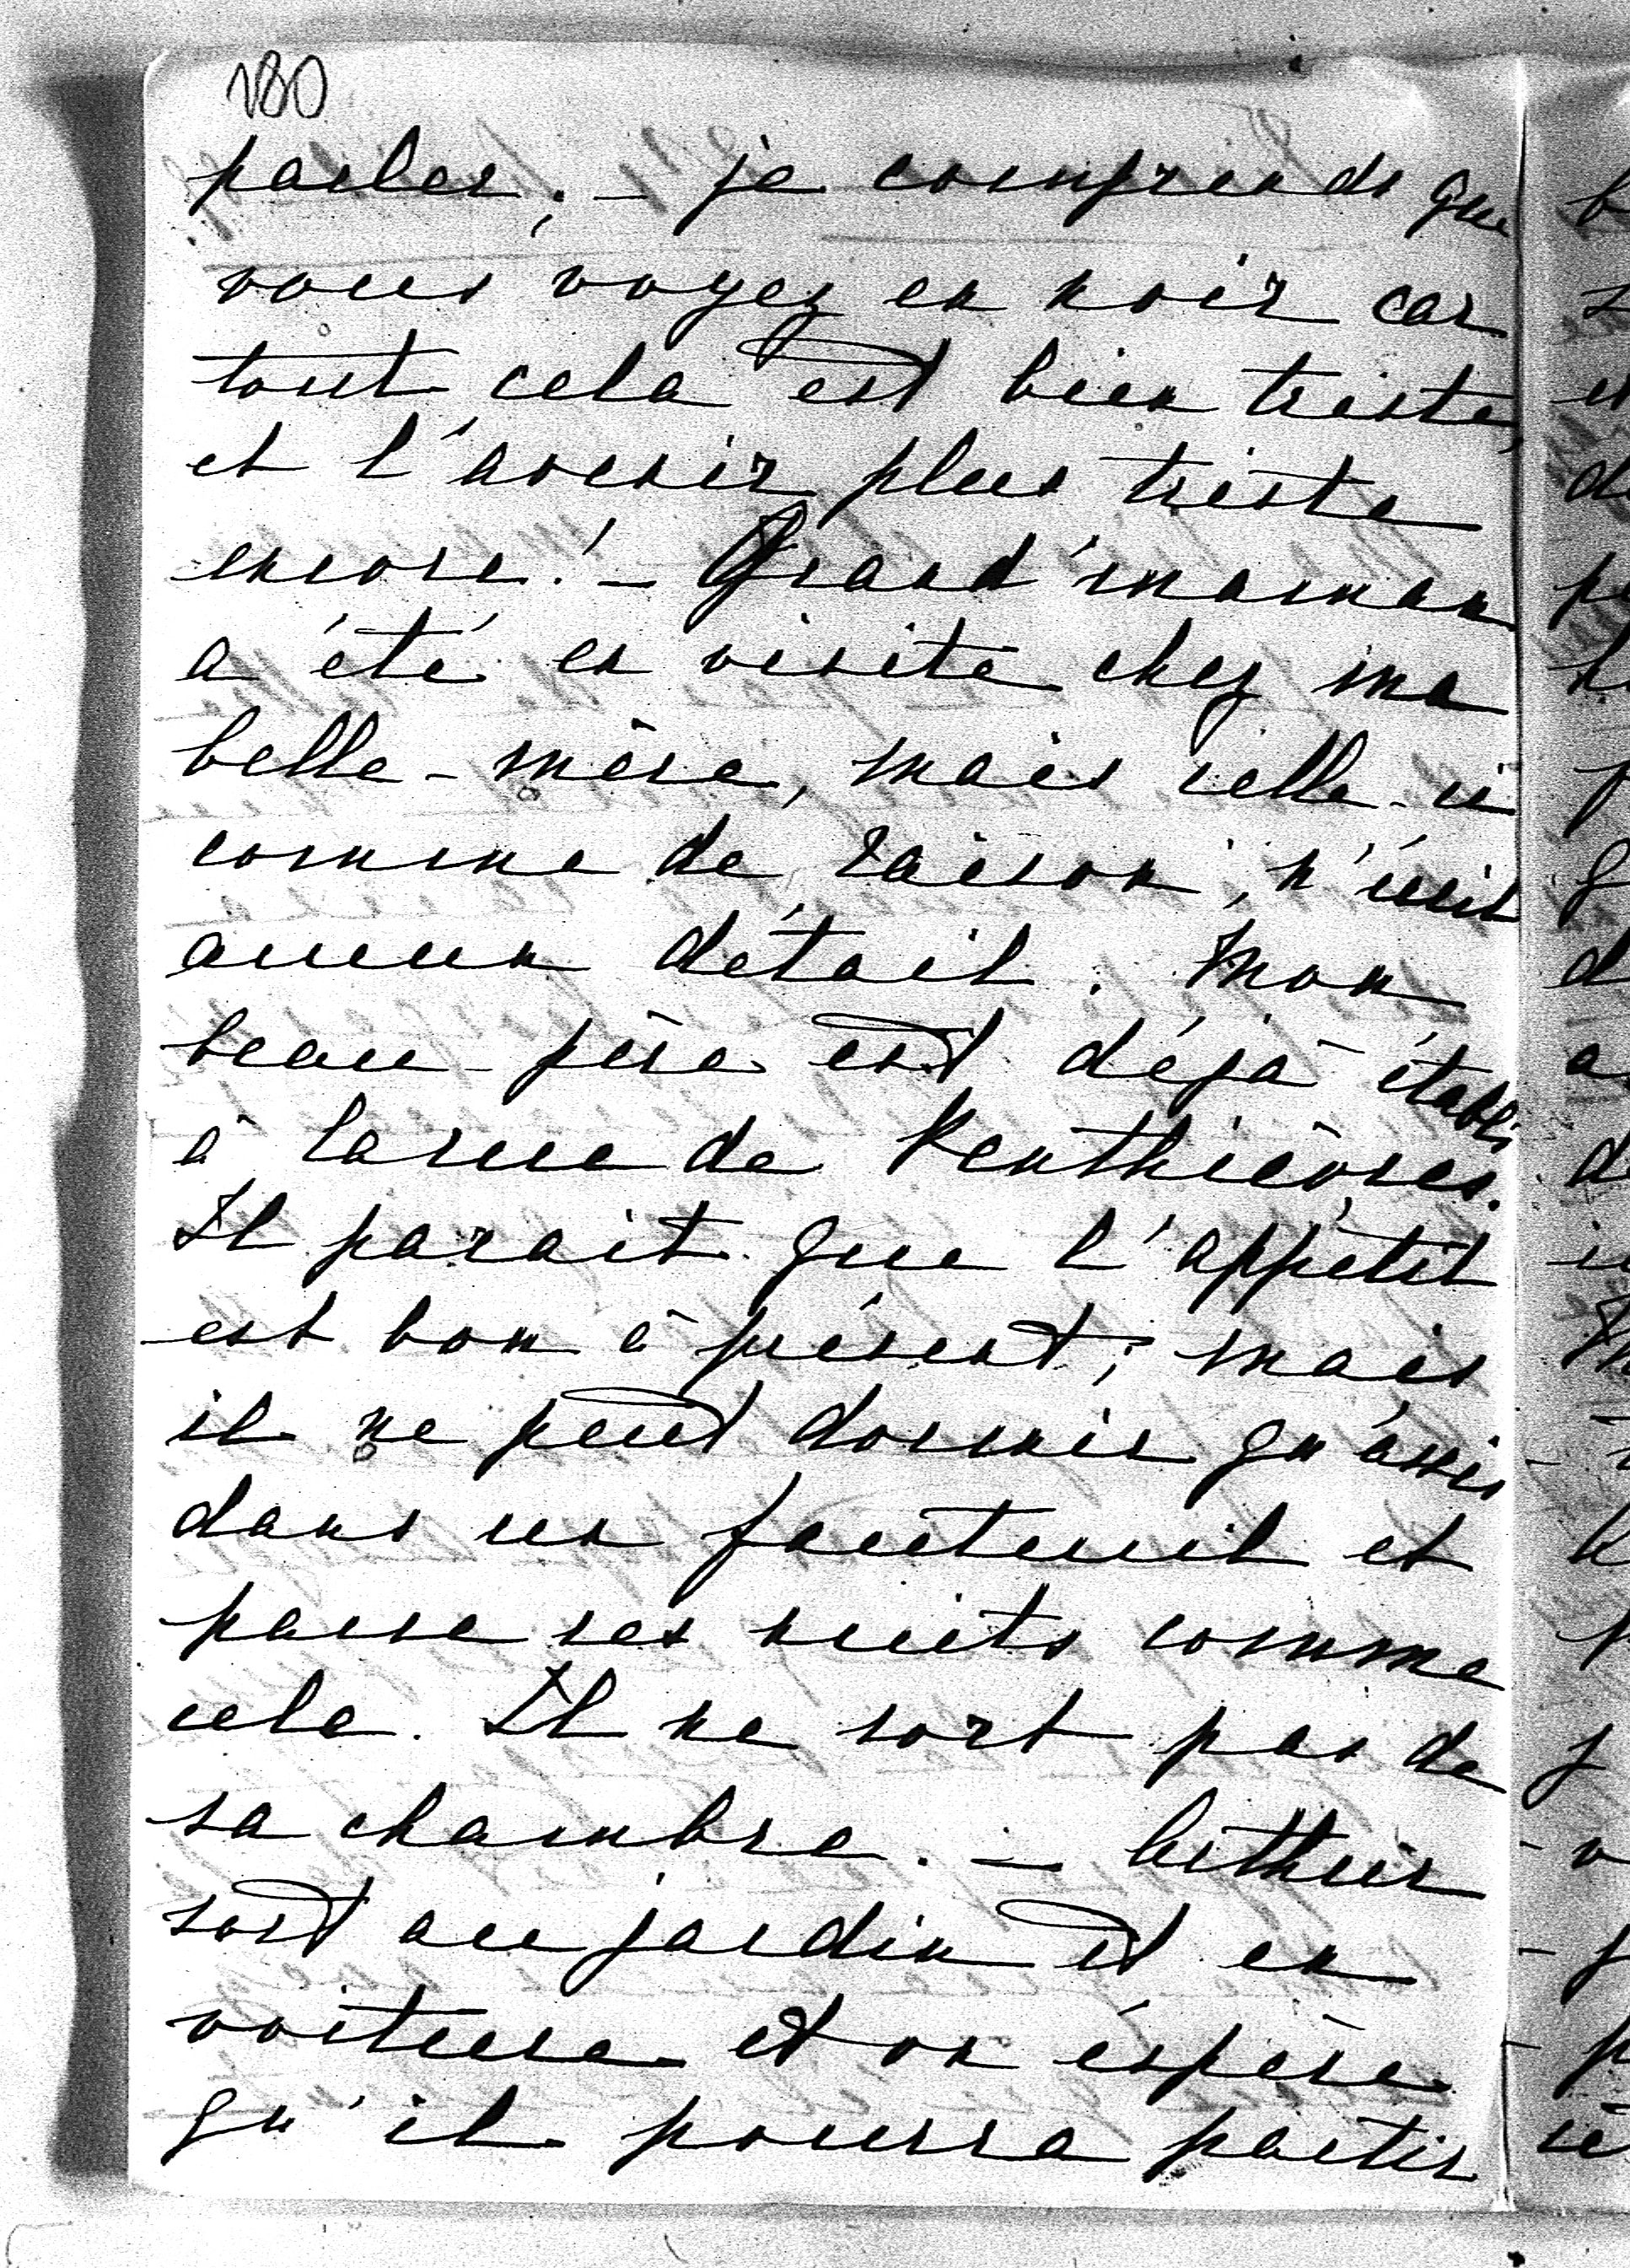 180
parler; — je comprends que
vous voyez en noir car
tout cela est bien triste,
et l'avenir plus triste
encore! — Grand'maman
a été en visite chez ma
belle-mère, mais celle-ci
comme de raison, n'écrit
aucun détail. Mon
beau-père est déjà établi
à la rue de Penthièvres.
Il parait que l'appétit
est bon à présent; mais
il ne peut dormir qu'assis
dans un fauteuil et
passe ses nuits comme
cela. Il ne sort pas de
sa chambre. —
sort au jardin et en
voiture et on éspère
qu'il pourra partir